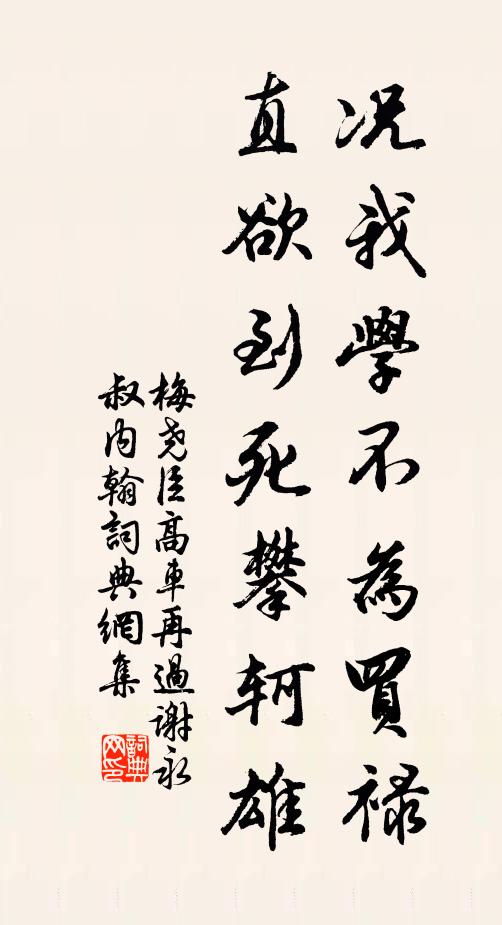 况我學不為買祿
直欲到死攀軻雄
梅尧臣高車再過謝永
叔内翰詞典網集
詞典
网印